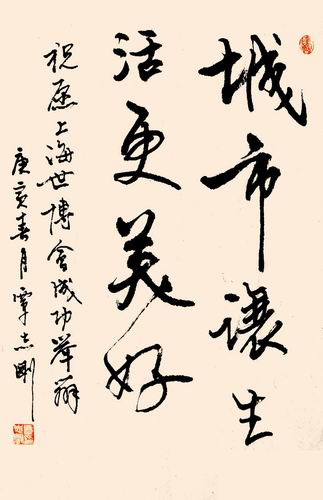 城市讓生
活更美好
祝愿上海世博會成功舉辦
庚寅春月覃志刚